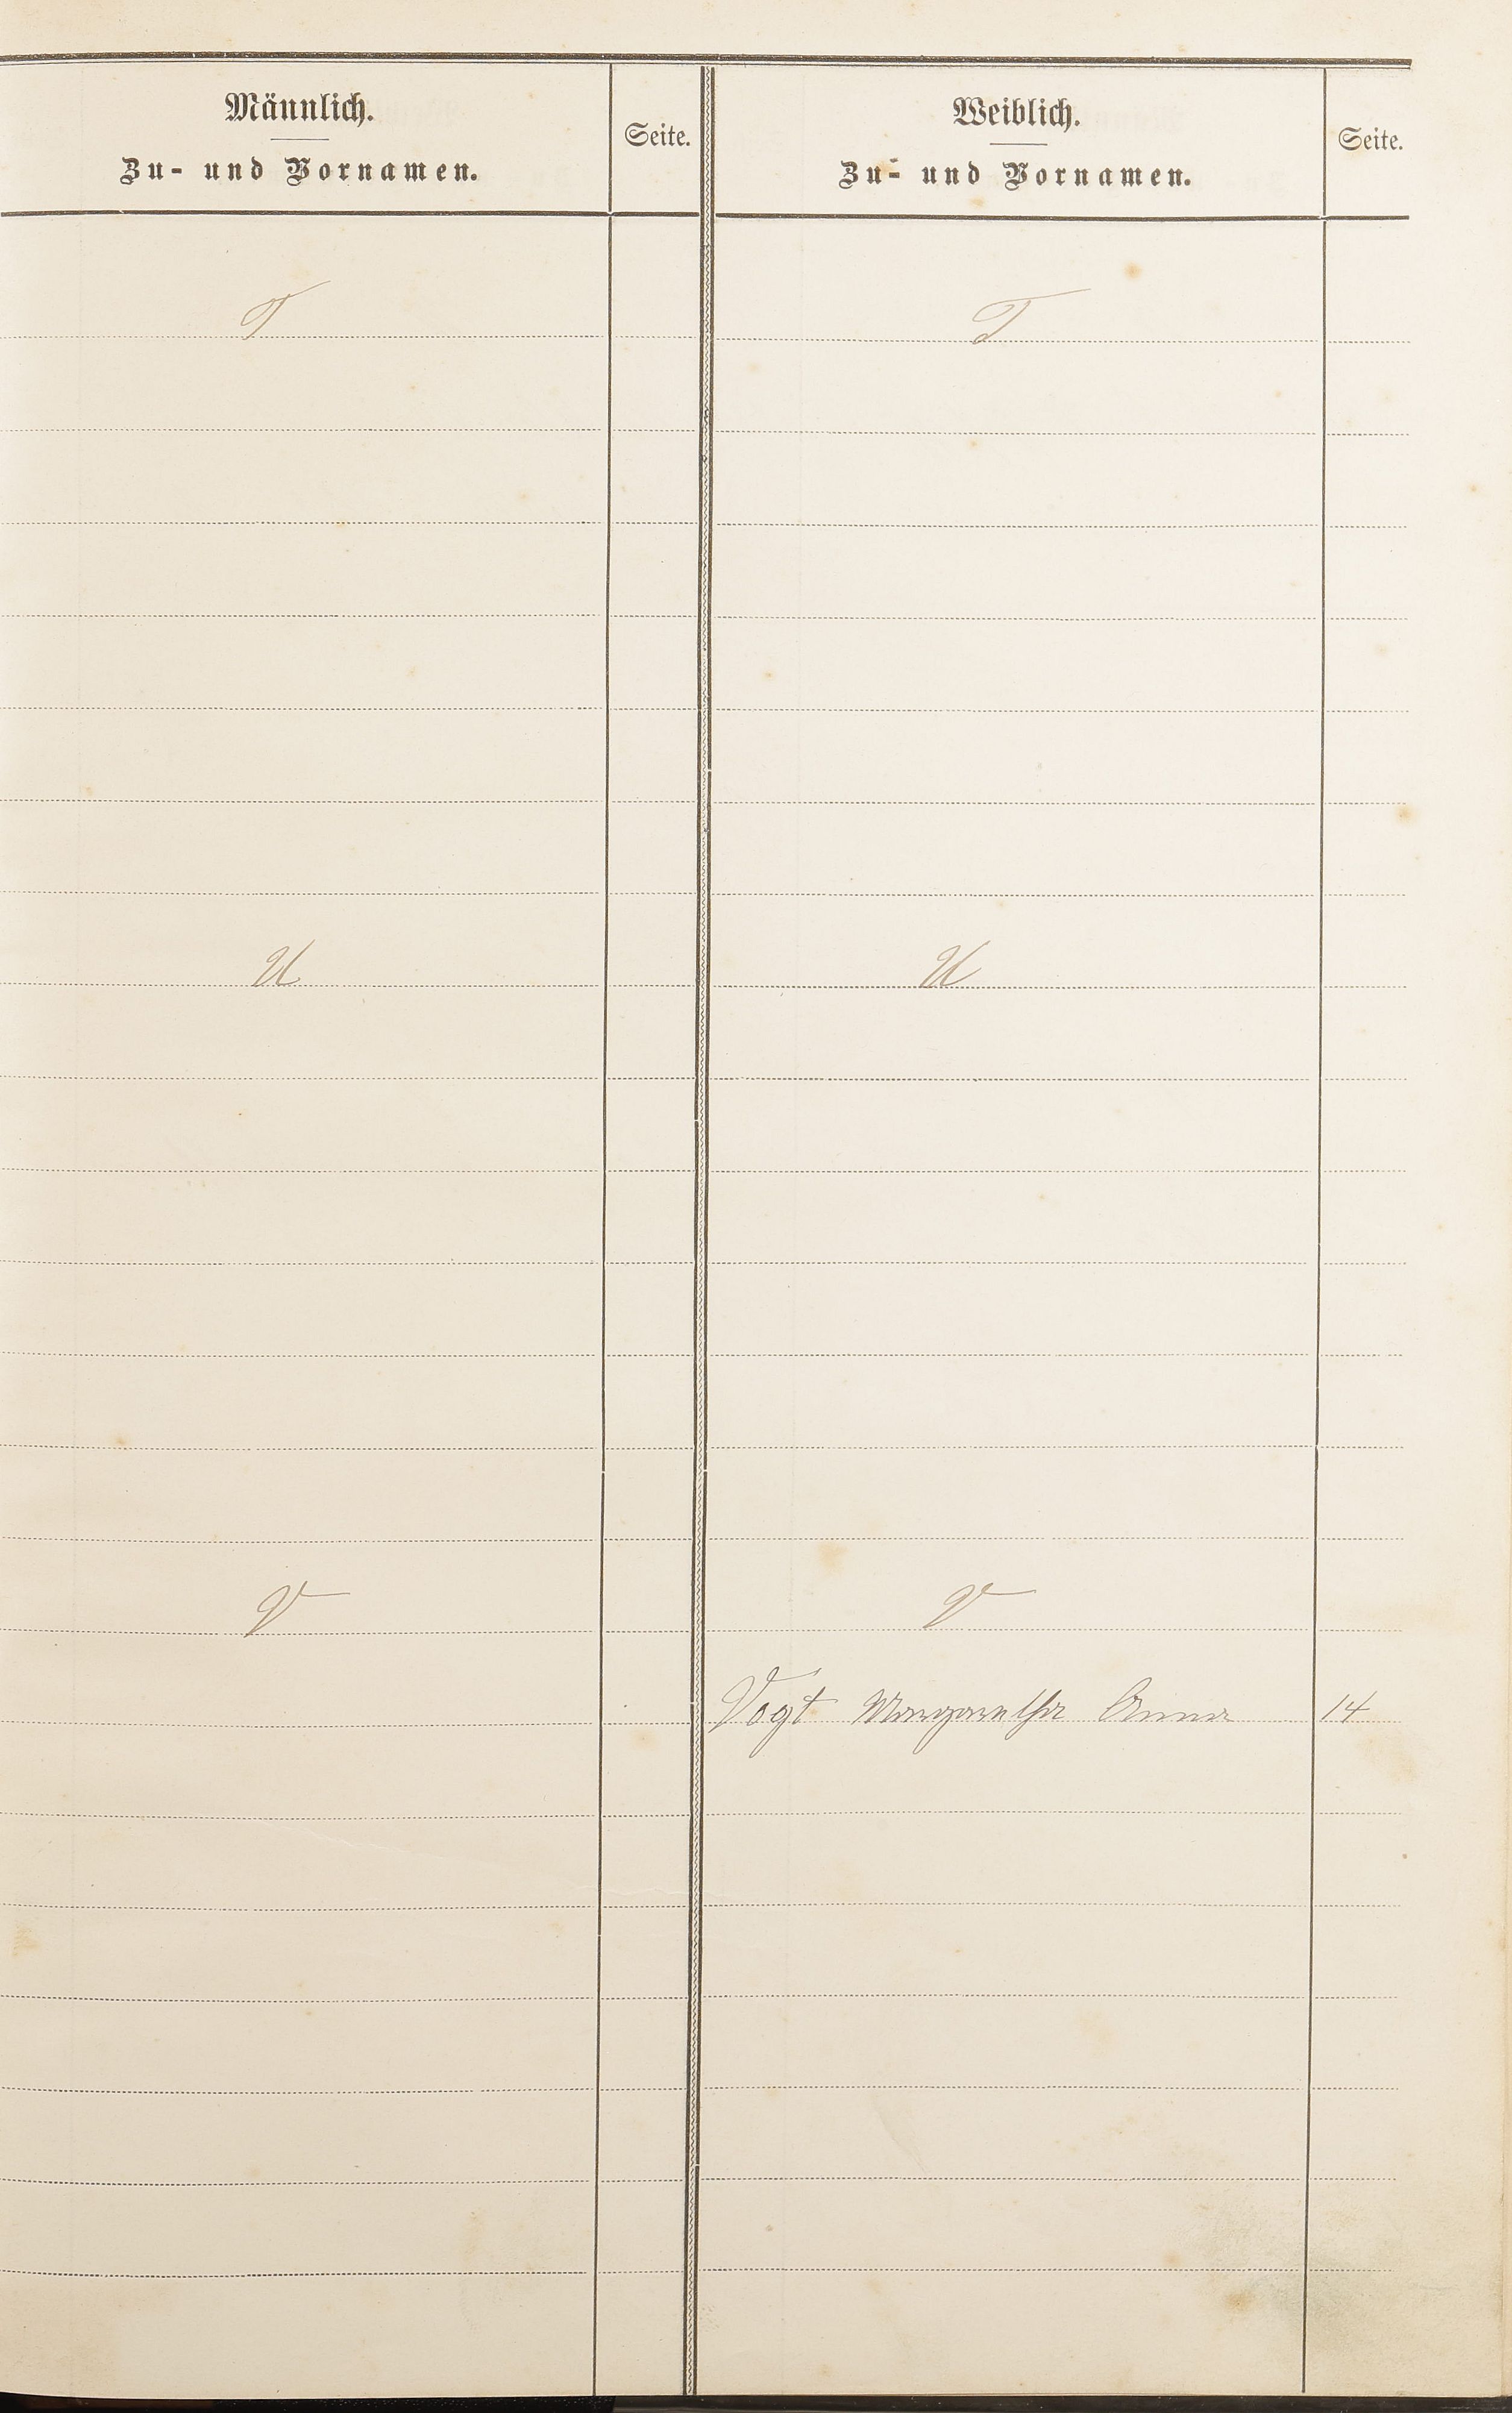 Männlich.
Zu- und Vornamen.
Seite.
Weiblich.
Zu- und Vornamen.
Seite.
T
T
U
U
V
V
Vogt Margaretha Anna 14